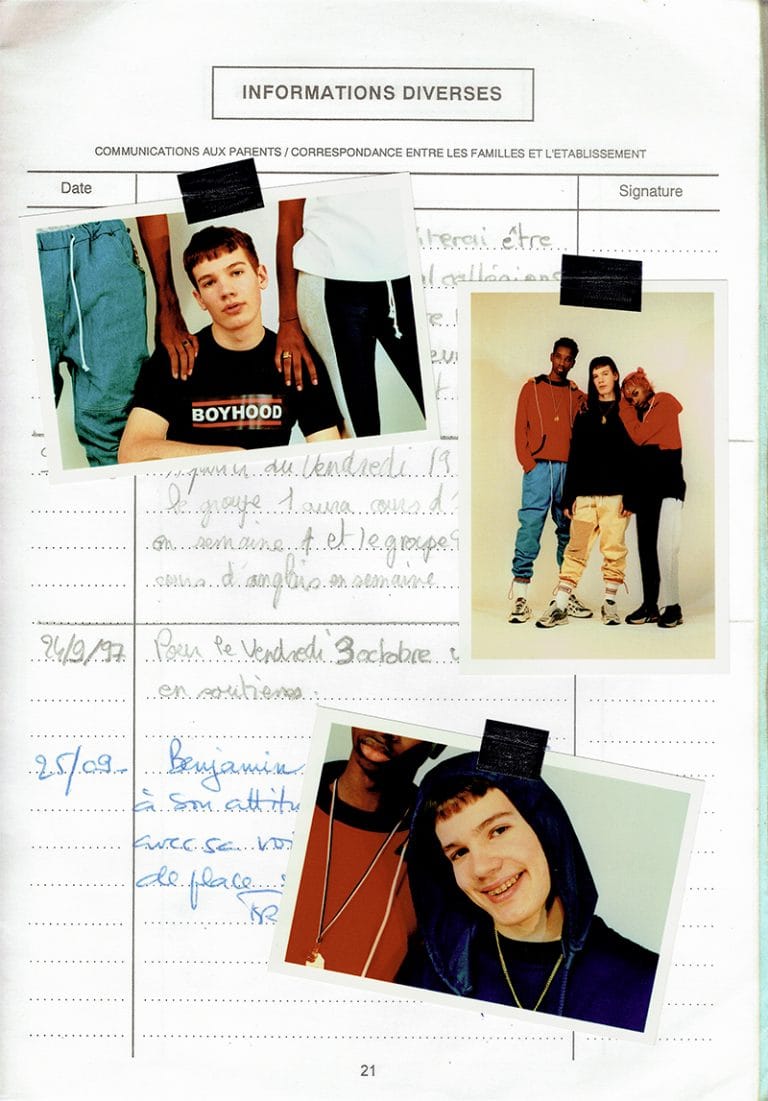 INFORMATIONS DIVERSES
COMMUNICATIONS AUX PARENTS / CORRESPONDANCE ENTRE LES FAMILLES ET L'ETABLISSEMENT
Date
Signature
être
BOYHOOD
du Vendredi 19
le groupe 1 aura cours d'
en semaine 1 et le groupe
cours d'anglais en semaine
24/9/97 Pour le Vendredi 3 octobre
en soutien.
25/09 Benjamin
à son attitu
avec sa voi
de place
21